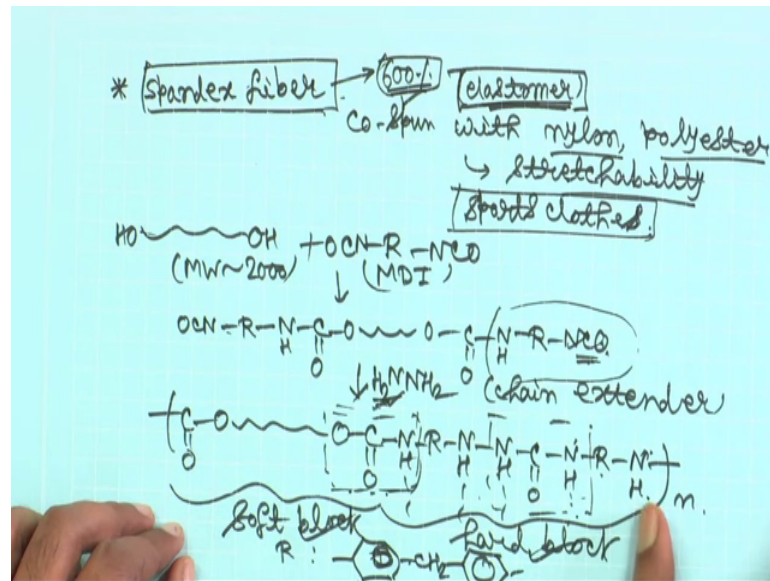 * Spandex fiber → 600% elastomer
Co-spun with nylon, polyester
↳ stretchability
Sports clothes.
HO OH + OCN-R-NCO
(MW~2000) (MDI)
↓
OCN-R-N-C-O O-C-N-R-NCO
H O O H
↓ H₂NNH₂ (chain extender
C-O O-C-N-R-N-N-C-N-R-N n.
O O H H H O H H
Soft block hard block
R : CH₂